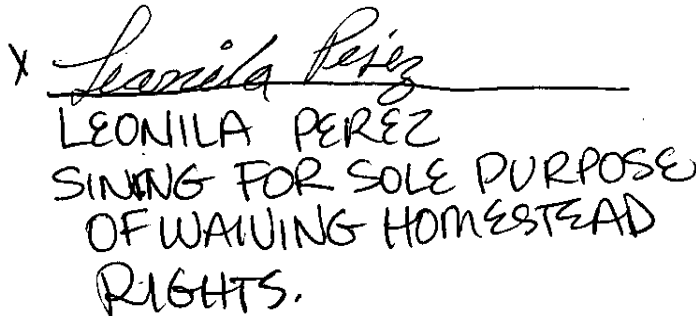 X Leonila Perez
LEONILA PEREZ
SINING FOR SOLE PURPOSE
OF WAIVING HOMESTEAD
RIGHTS.